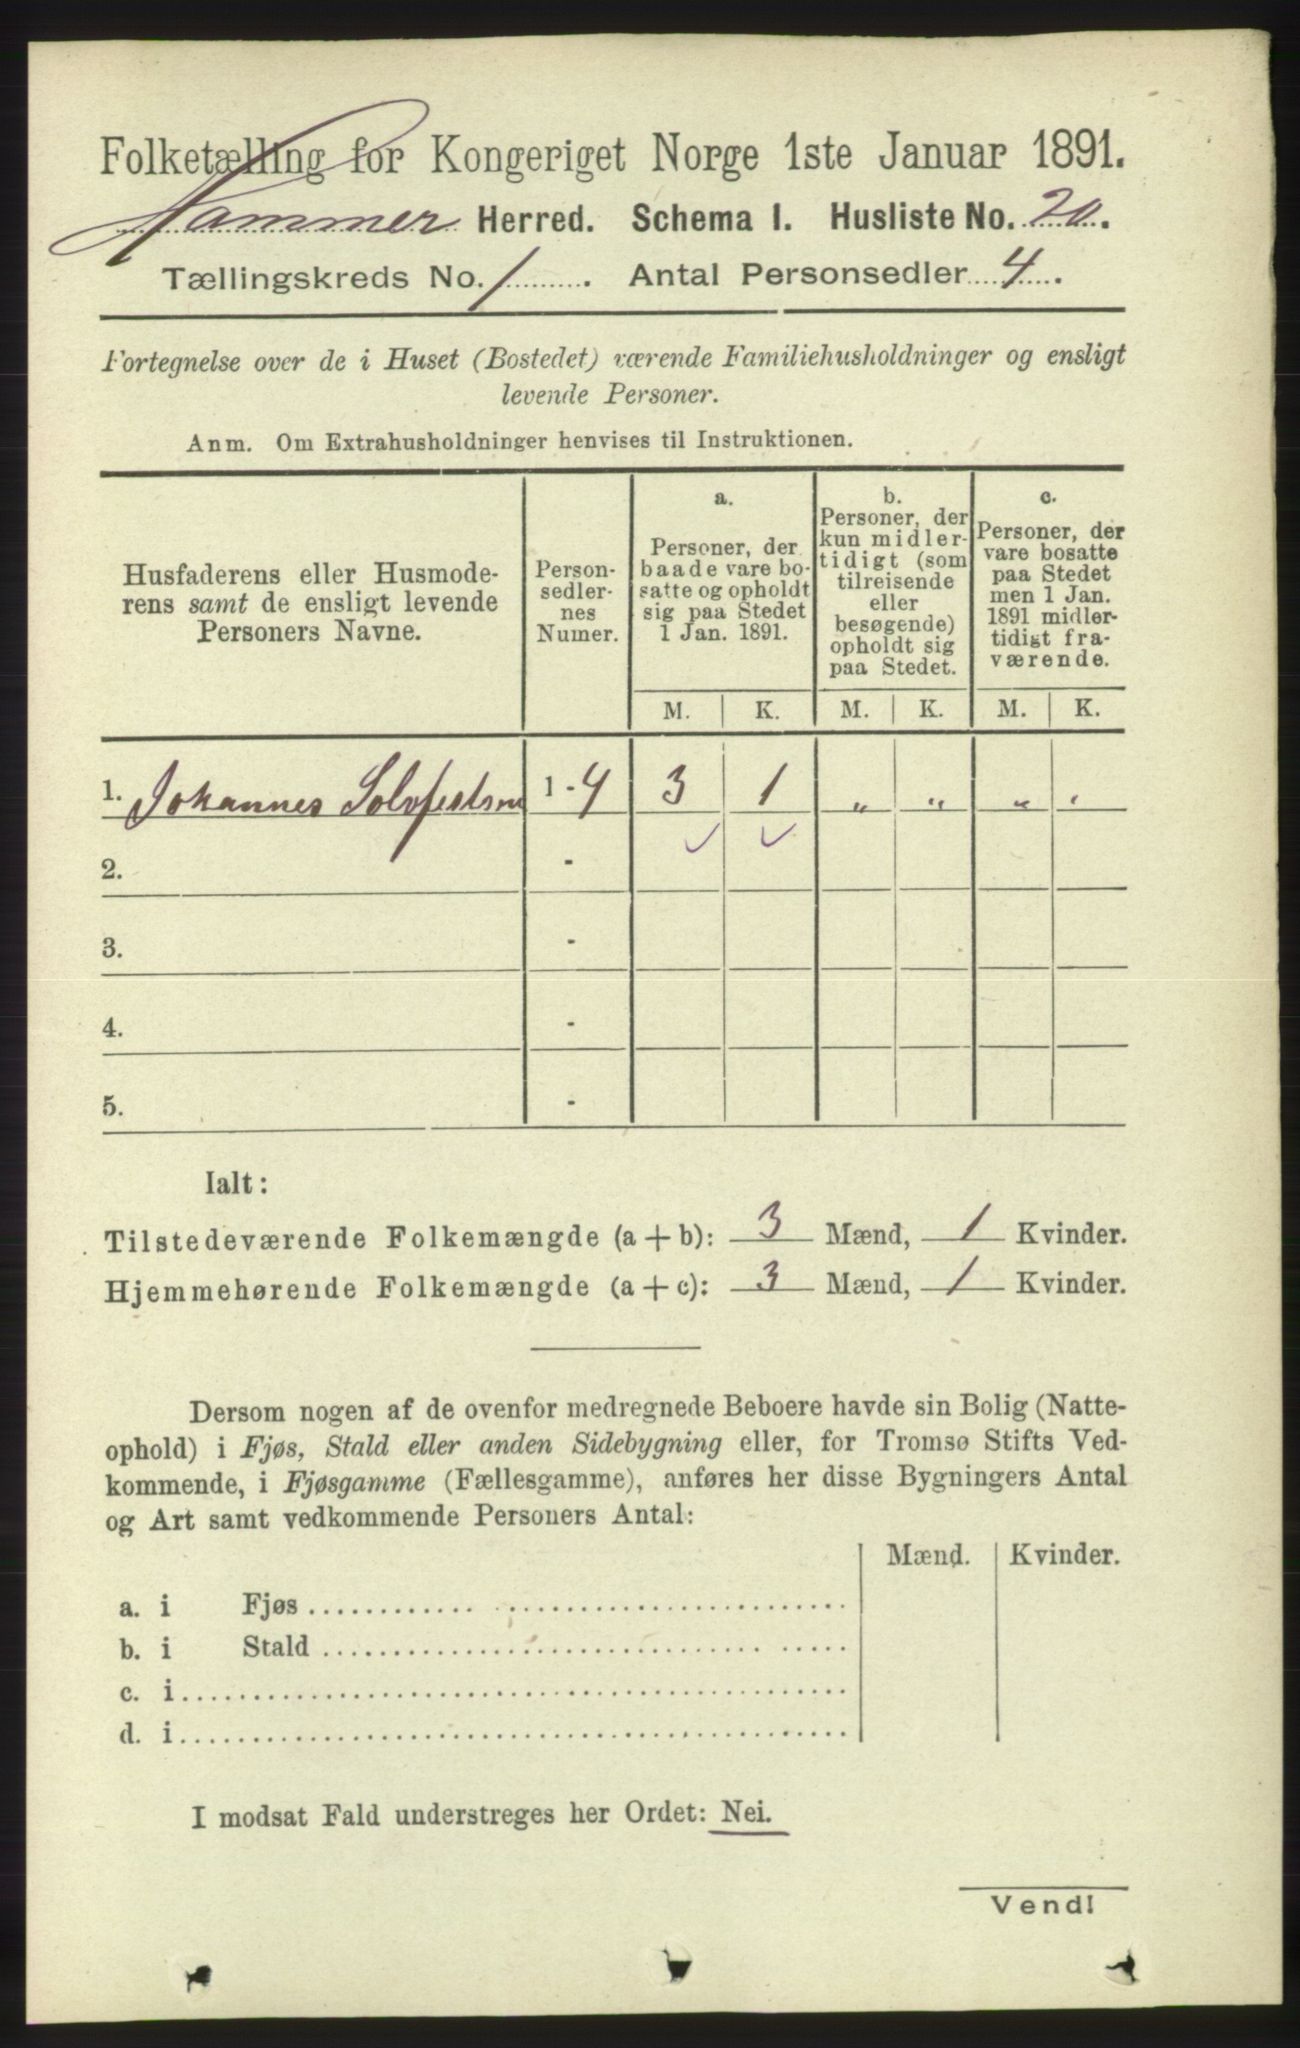 Folketælling for Kongeriget Norge 1ste Januar 1891.
Hammer Herred. Schema 1. Husliste No. 20.
Tællingskreds No. 1. Antal Personsedler 4.
Fortegnelse over de i Huset (Bostedet) værende Familiehusholdninger og ensligt
levende Personer.
Anm. Om Extrahusholdninger henvises til Instruktionen.
Husfaderens eller Husmode-
rens samt de ensligt levende
Personers Navne.
Person-
sedler-
nes
Numer.
a.
Personer, der
baade vare bo-
satte og opholdt
sig paa Stedet
1 Jan. 1891.
b.
Personer, der
kun midler-
tidigt (som
tilreisende
eller
besøgende)
opholdt sig
paa Stedet.
c.
Personer, der
vare bosatte
paa Stedet
men 1 Jan.
1891 midler-
tidigt fra-
værende.
M. K. M. K. M. K.
1. Johannes Solvfestsen 1 - 4 3 1 „ „ „ „
2. - ✓ ✓
3. -
4. -
5. -
Ialt:
Tilstedeværende Folkemængde (a + b): 3 Mænd, 1 Kvinder.
Hjemmehørende Folkemængde (a + c): 3 Mænd, 1 Kvinder.
Dersom nogen af de ovenfor medregnede Beboere havde sin Bolig (Natte-
ophold) i Fjøs, Stald eller anden Sidebygning eller, for Tromsø Stifts Ved-
kommende, i Fjøsgamme (Fællesgamme), anføres her disse Bygningers Antal
og Art samt vedkommende Personers Antal:
Mænd. Kvinder.
a. i Fjøs
b. i Stald
c. i
d. i
I modsat Fald understreges her Ordet: Nei.
Vend!